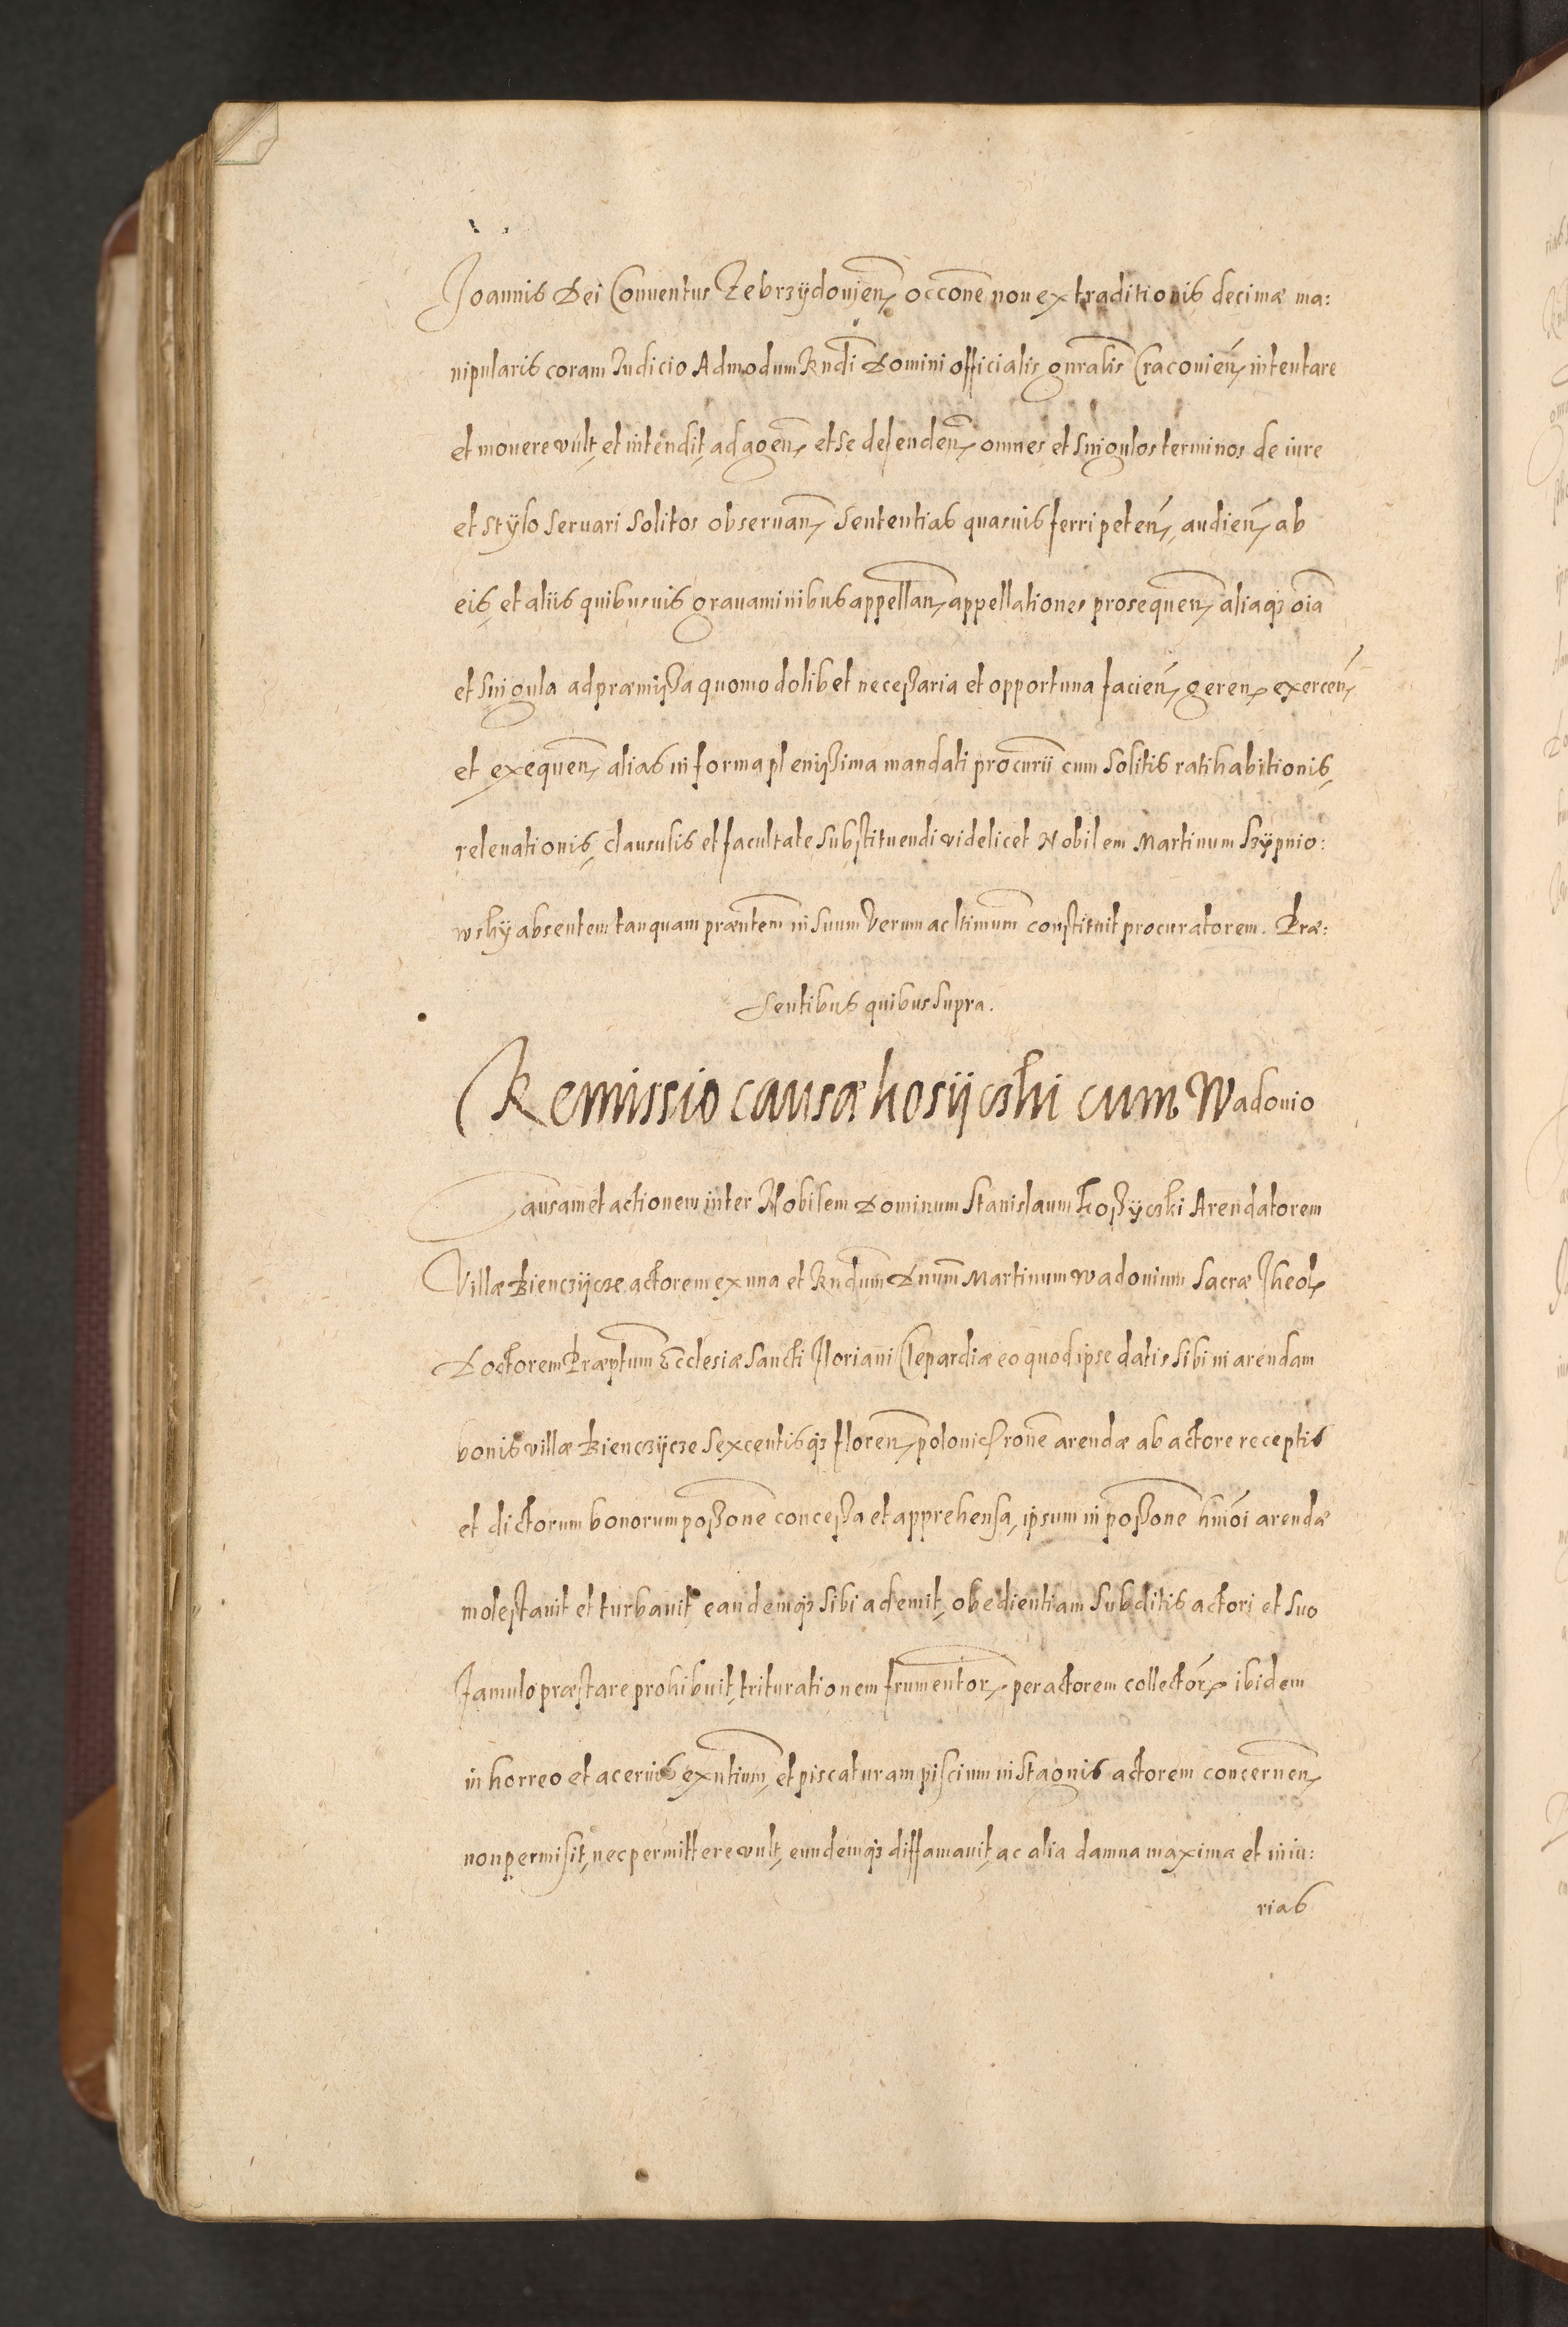 Joannis Dei Conuentus Zebrzÿdouien̄ occōne non extraditionis decimæ ma:
nipularis coram Judicio Admodum Rndi Domini officialis gnralis Cracouien̄ intentare
et mouere vult, et intendit, ad agen̄ et se defenden̄ omnes et singulos terminos de iure
et stÿlo seruari solitos obseruan̄ sententias quasuis ferri peten̄, audien̄ ab
eis, et aliis quibusuis grauaminibus appellan̄ appellationes prosequen̄ aliaqȝ oīa
et singula ad præmißa quomodolibet neceßaria et opportuna facien̄ geren̄ exercen̄
et exequen̄ alias in forma plenißima mandati procurii cum solitis ratihabitionis,
releuationis, clausulis et facultate substituendi videlicet Nobilem Martinum Szÿpnio:
wskÿ absentem tanquam præntem in suum verum ac ltimum constituit procuratorem. Præ:
sentibus quibus supra.
Remissio causæ kosÿczki cum Wadouio
Causam et actionem inter Nobilem Dominum Stanislaum Koßÿczki Arendatorem
Villæ Bienczÿcze actorem ex una et Rndum Dnum Martinum Wadouium Sacræ Theol
Doctorem Præptum Ecclesiæ Sancti Floriani Clepardiæ eo quod ipse datis sibi in arendam
bonis villæ Bienczÿcze sexcentisqȝ floren̄ polonic rōne arendæ ab actore receptis
et dictorum bonorum poßone conceßa et apprehensa, ipsum in poßone hmōi arendæ
molestauit et turbauit eandemqȝ sibi ademit, obedientiam subditis actori et suo
famulo præstare prohibuit, triturationem frumentor per actorem collector ibidem
in horreo et aceruis exntium, et piscaturam piscium in stagnis actorem concernen̄
non permisit, nec permittere vult, eundemqȝ diffamauit, ac alia damna maxima et iniu:
rias